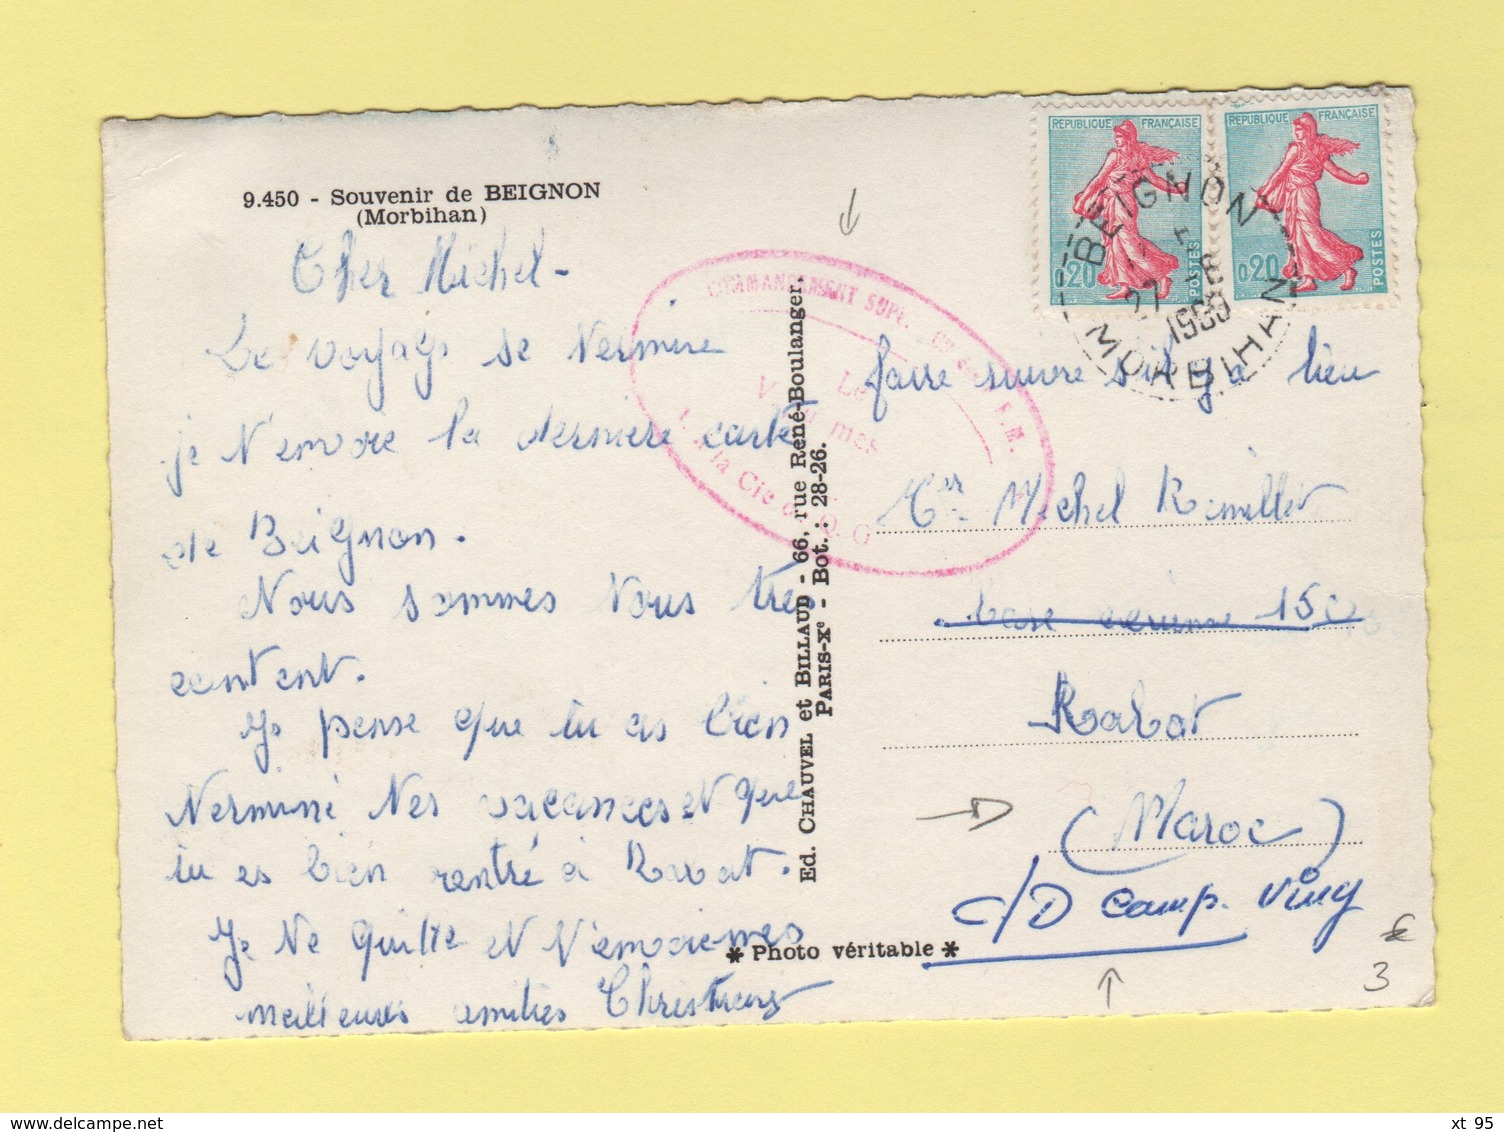 9.450 - Souvenir de BEIGNON
(Morbihan)
Cher Michel -
Le voyage se Nermine
je N'envoie la dernière carte
de Beignon.
Nous sommes Nous très
content.
Je pense que tu as bien
Nerminé Nes vacances et que
tu es bien rentré à Rabat.
Je Ne quitte et N'envoie mes
meilleures amitiés
Ed. CHAUVEL et BILLAUD - 66, rue René-Boulanger,
PARIS-Xe - Bot. : 28-26.
* Photo véritable *
REPUBLIQUE FRANÇAISE
0,20
POSTES
REPUBLIQUE FRANÇAISE
0,20
POSTES
BEIGNON
27
MORBIHAN
COMMANDEMENT SUPR.
Le
la Cie Q. G
faire suivre s'il y a lieu
Michel
base aérienne 150
Rabat
(Maroc)
C/D Camp.
€
3
xt 95